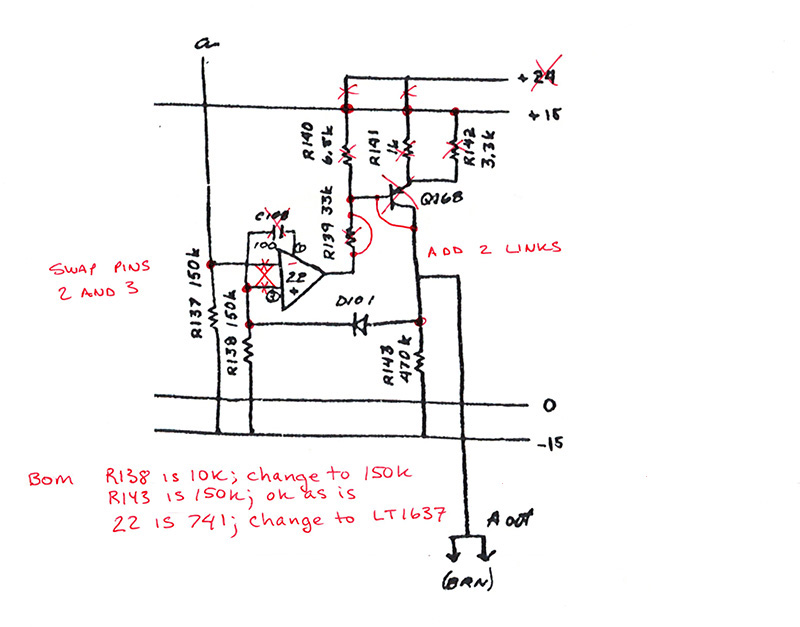 a
+ 24
+ 15
R140
6.8k
R141
1k
R142
3.3k
Q168
C108
100
R139 33k
ADD 2 LINKS
SWAP PINS
2 AND 3
-
22
+
R137 150k
R138 150k
D101
R143
470k
0
-15
BOM R138 is 10K; change to 150K
R143 is 150K; ok as is
22 IS 741; change to LT1637
A out
(BRN)